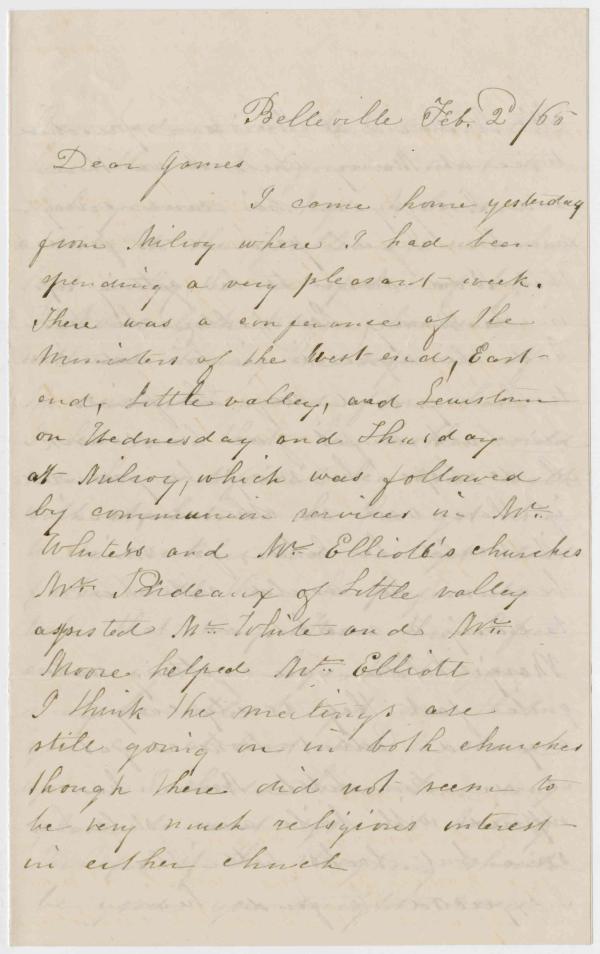 Belleville Feb. 2d /65
Dear James
I came home yesterday
from Milroy where I had been
spending a very pleasant week.
There was a conferance of the
Ministers of the West end, East
end, Little valley, and Lewistown
on Wednesday and Thursday
at Milroy, which was followed
by communion services in Mr.
White's and Mr. Elliott's churches
Mr. Prideaux of Little valley
assisted Mr. White and Mr.
Moore helped Mr. Elliott
I think the meetings are
still going on in both churches
though there did not seem to
be very much religious interest
in either church